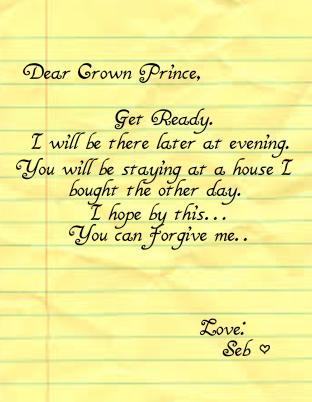 Dear Crown Prince,
Get Ready.
I will be there later at evening.
You will be staying at a house I
bought the other day.
I hope by this...
You can forgive me..
Love:
Seb ♡